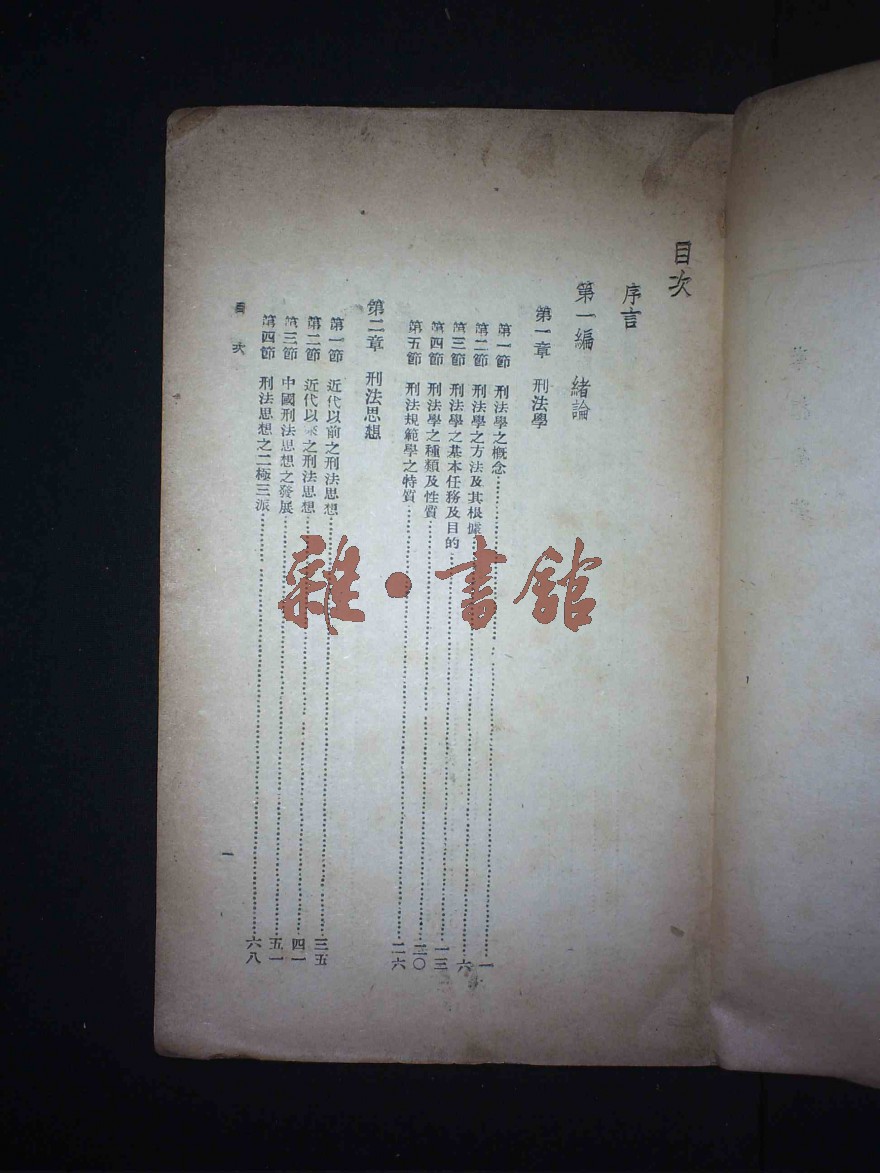 目次
序言
第一編 緒論
第一章 刑法學
第一節 刑法學之概念……一
第二節 刑法學之方法及其根據……六
第三節 刑法學之基本任務及目的……一三
第四節 刑法學之種類及性質……二〇
第五節 刑法規範學之特質……二六
第二章 刑法思想
第一節 近代以前之刑法思想……三五
第二節 近代以來之刑法思想……四一
第三節 中國刑法思想之發展……五一
第四節 刑法思想之二極三派……六八
目次
一
雜·書館